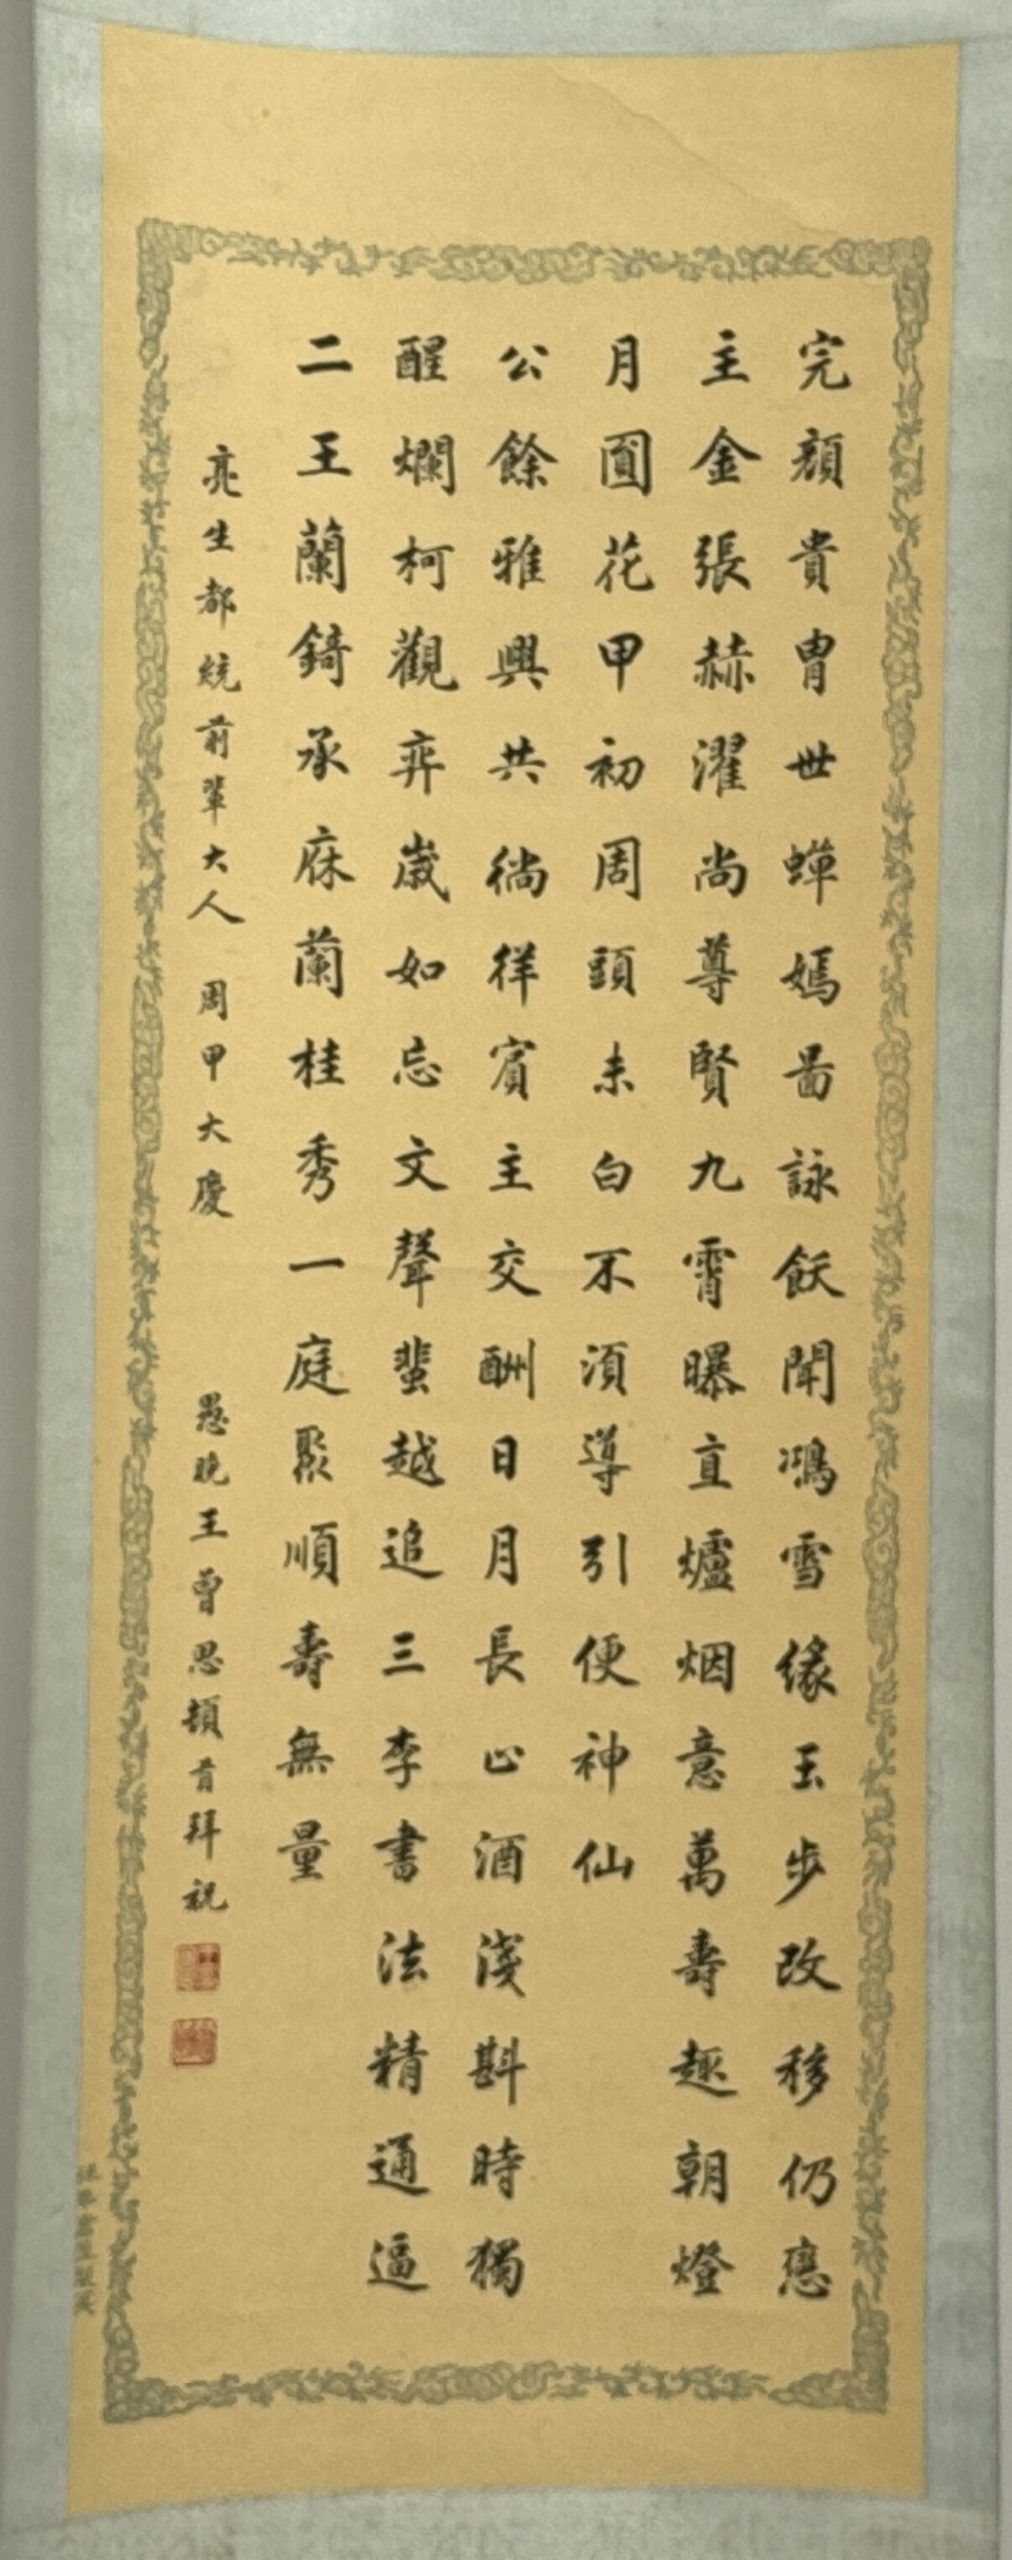 完顏貴胄世蟬嫣圖詠飫聞鴻雪緣玉步改移仍戀
主金張赫濯尚尊賢九霄曝直爐烟意萬壽趣朝燈
月圓花甲初周頭未白不須導引便神仙
公餘雅興共徜徉賓主交酬日月長止酒淺斟時獨
醒爛柯觀弈歲如忘文聲蜚越追三李書法精通逼
二王蘭錡承庥蘭桂秀一庭聚順壽無量
亮生都統前輩大人 周甲大慶
愚晚王曾思頓首拜祝